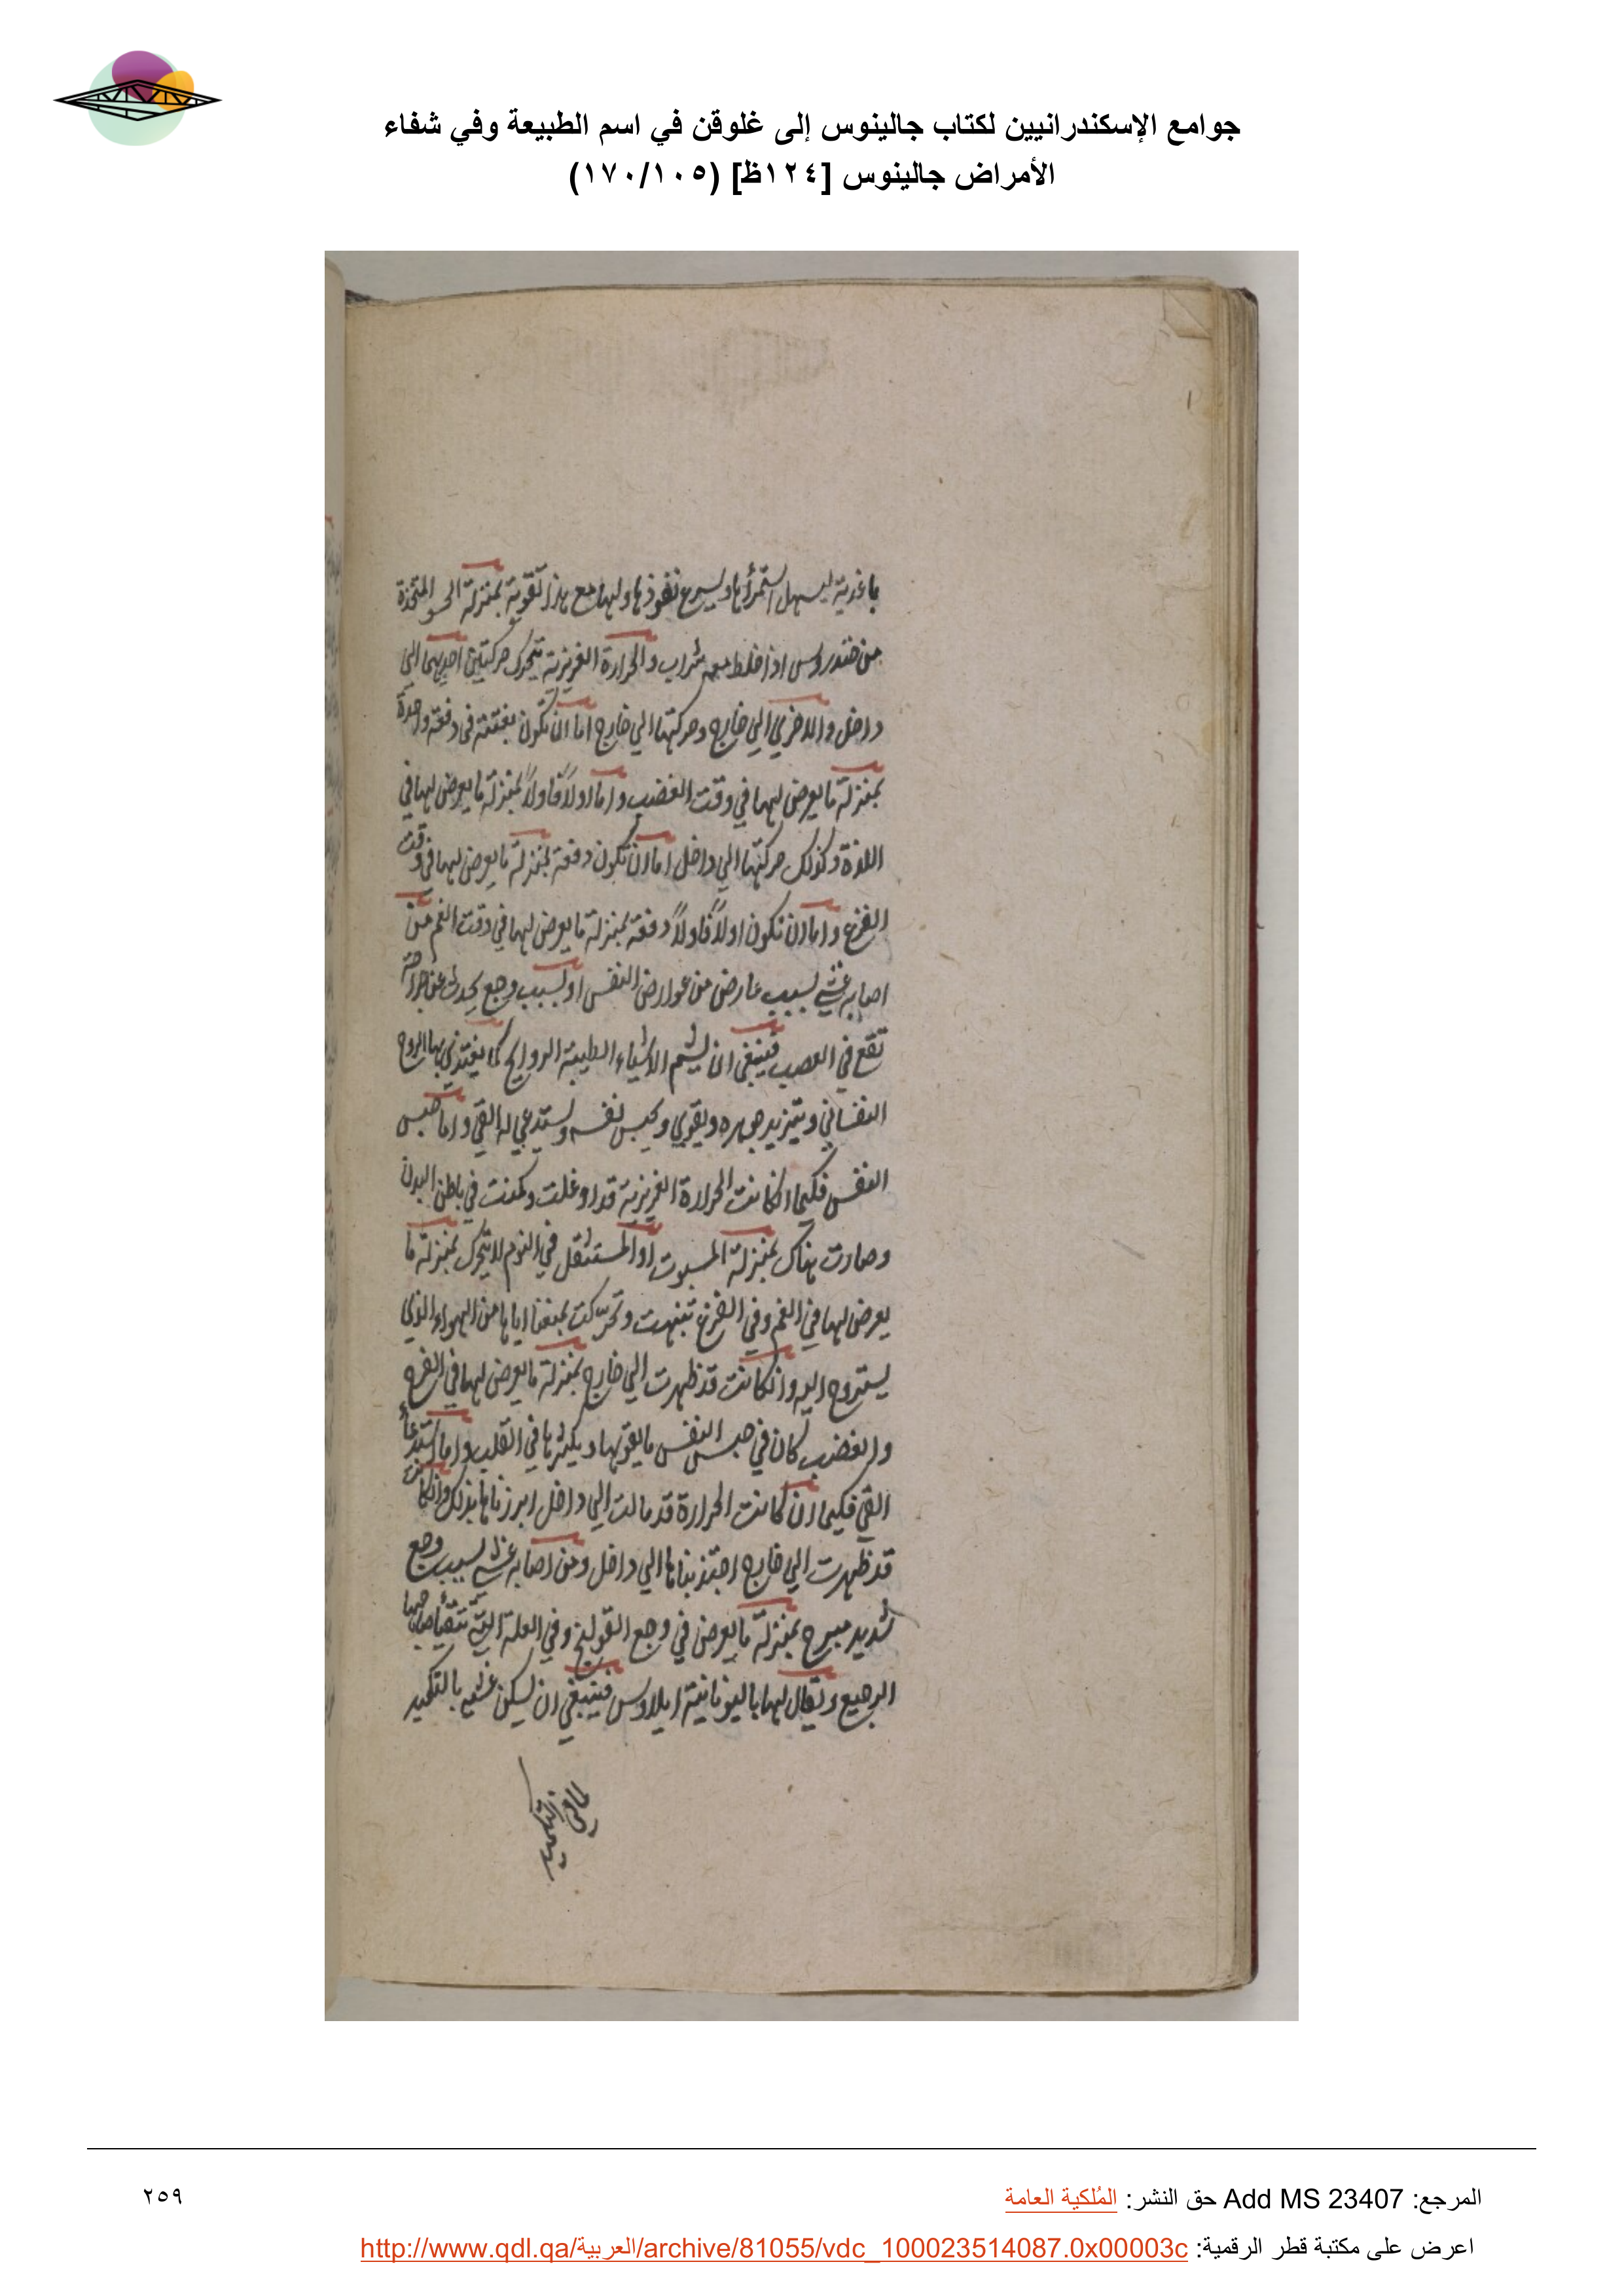 جوامع الإسكندرانيين لكتاب جالينوس إلى غلوقن في اسم الطبيعة وفي شفاء
الأمراض جالينوس [١٢٤ظ] (١٧٠/١٠٥)
باغذية يسهل استمرأها ويسرع نفوذها ولها مع هذا تقوية بمنزلة الحسو المتخذة
من خندروس اذا خلط معه شراب والحرارة الغريزية تتحرك حركتين احديهما الي
داخل والاخري الي خارج وحركتها الي خارج اما ان تكون بغتة في دفعة واحدة
بمنزلة ما يعرض لها في وقت الغضب واما اولاً فاولاً بمنزلة ما يعرض لها في
اللذة وكذلك حركتها الي داخل اما ان تكون دفعة بمنزلة ما يعرض لها في وقت
الفزع واما ان تكون اولاً فاولاً دفعة بمنزلة ما يعرض لها في وقت الغم من
اصابه غشي بسبب عارض من عوارض النفس او بسبب وجع يحدث عن جراحة
تقع في العصب فينبغي ان يشم الاشياء الطيبة الروايح كما يغتذي بها الروح
النفساني ويتزيد جوهره ويقوي ويحبس نفسه ويستدعي له القي واما حبس
النفس فكيما ان كانت الحرارة الغريزية قد اوغلت وكمنت في باطن البدن
وصارت هناك بمنزلة المسبوت او المستثقل في النوم لا يتحرك بمنزلة ما
يعرض لها في الغم وفي الفزع تنبهت وتحرّكت بمنعنا اياها من الهواء الذي
يستروح اليه وان كانت قد ظهرت الي خارج بمنزلة ما يعرض لها في الفرح
والغضب كان في حبس النفس ما يقويها ويكثرها في القلب واما استدعاء
القي فكيما ان كانت الحرارة قد مالت الي داخل ابرزناها بذلك وان كانت
قد ظهرت الي خارج اجتذبناها الي داخل ومن اصابه غشي بسبب وجع
شديد مبرح بمنزلة ما يعرض في وجع القولنج وفي العلة التي يتقيأ صاحبها
الرجيع ويقال لها باليونانية ايلاوس فينبغي ان يسكن غشيه بالتكميد
المرجع: Add MS 23407 حق النشر: المُلكية العامة
٢٥٩
اعرض على مكتبة قطر الرقمية: http://www.qdl.qa/العربية/archive/81055/vdc_100023514087.0x00003c